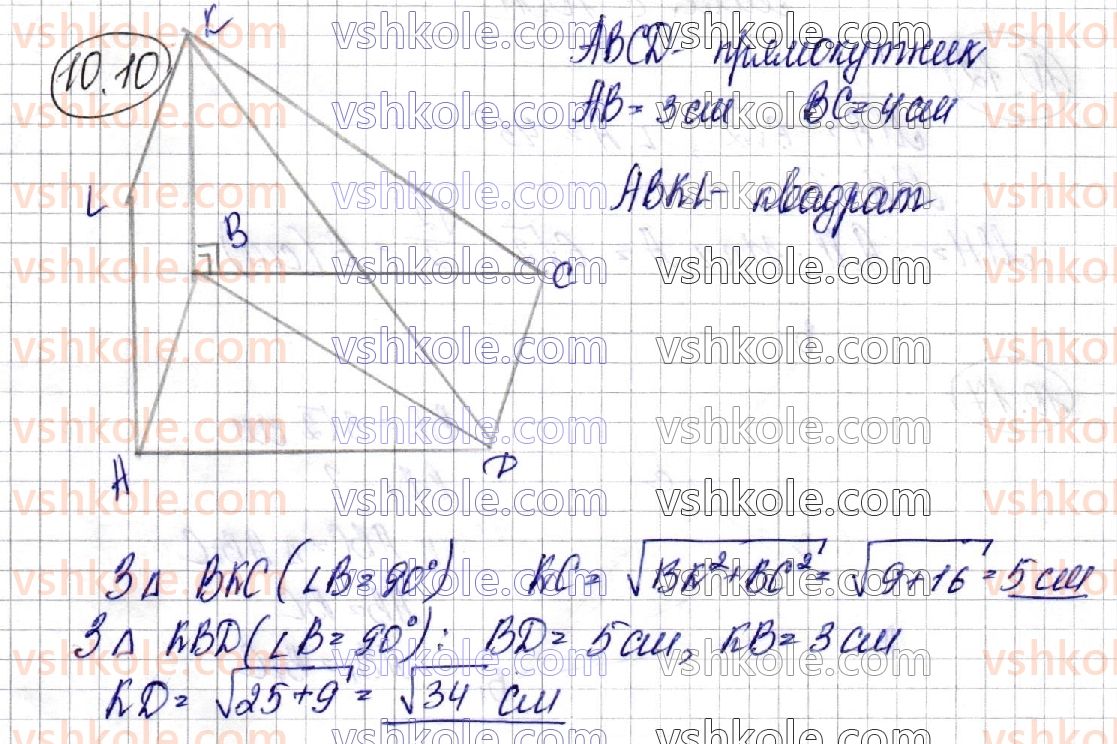 10.10
K
L
B
C
A
D
ABCD - прямокутник
AB = 3 см BC = 4 см
ABKL - квадрат
З Δ BKC (∠B = 90°) KC = √BK²+BC² = √9+16 = 5 см
З Δ KBD (∠B = 90°): BD = 5 см, KB = 3 см
KD = √25+9 = √34 см
vshkole.com